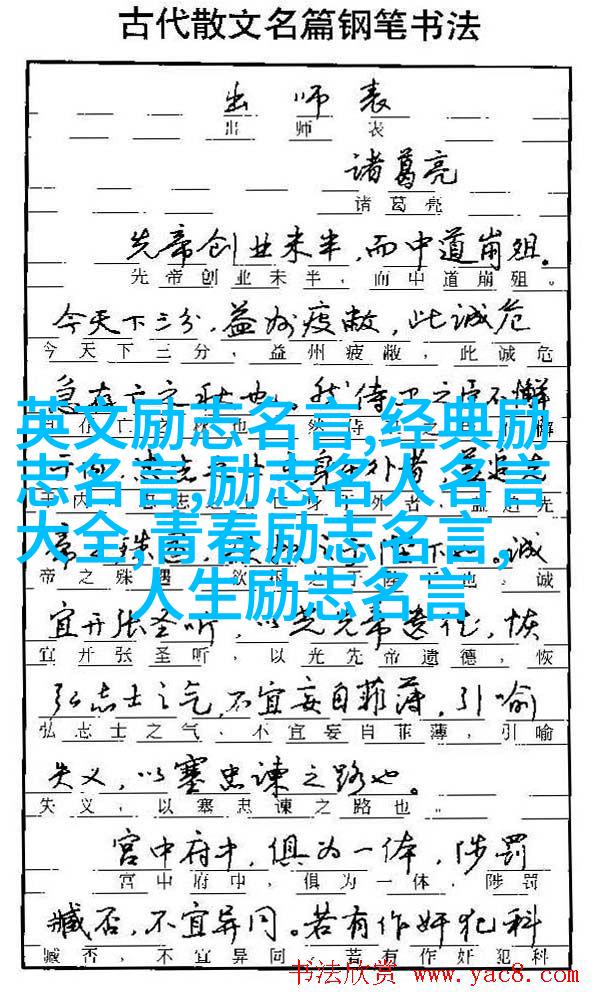 古代散文名篇钢笔书法
出师表
出师表
诸葛亮
诸葛亮
先帝创业未半,而中道崩殂。
先帝创业未半,而中道崩殂。
今天下三分,益州疲敝,此诚危
今天下三分,益州疲敝,此诚危
英文励志名言,经典励
志名言,励志名人名言
大全,青春励志名言,
人生励志名言
帝之殊遇
诚
宜开张圣听,以光先帝遗德,恢
宜开张圣听,以光先帝遗德,恢
弘志士之气,不宜妄自菲薄,引喻
弘志士之气,不宜妄自菲薄,引喻
失义,以塞忠谏之路也。
失义,以塞忠谏之路也。
宫中府中,俱为一体,陟罚
宫中府中,俱为一体,陟罚
臧否,不宜异同。若有作奸犯科
臧否,不宜异同。若有作奸犯科
书法欣赏 www.yac8.com